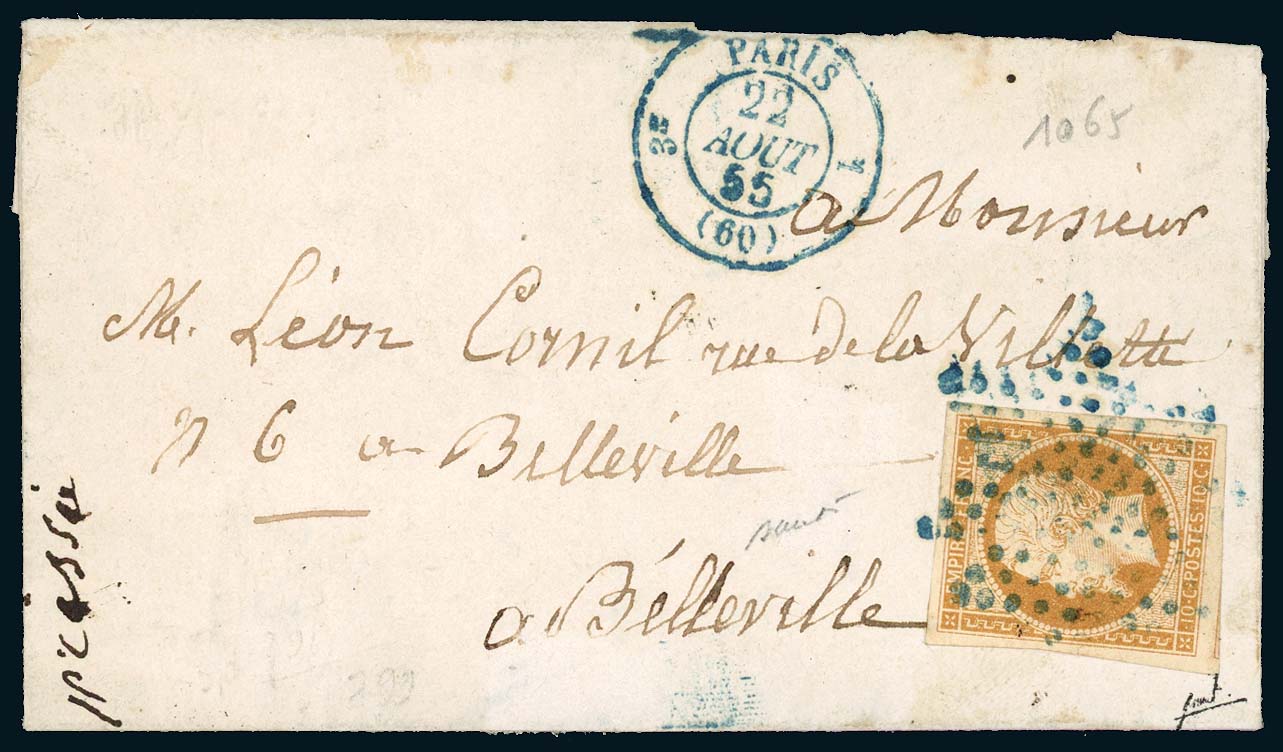 PARIS
3E
22
AOUT
55
(60)
1065
a Monsieur
M. Léon Cornil rue de la Villette
n 6 a Belleville
a Bélleville
EMPIRE FRANC.
10·C·POSTES·10·C·
299